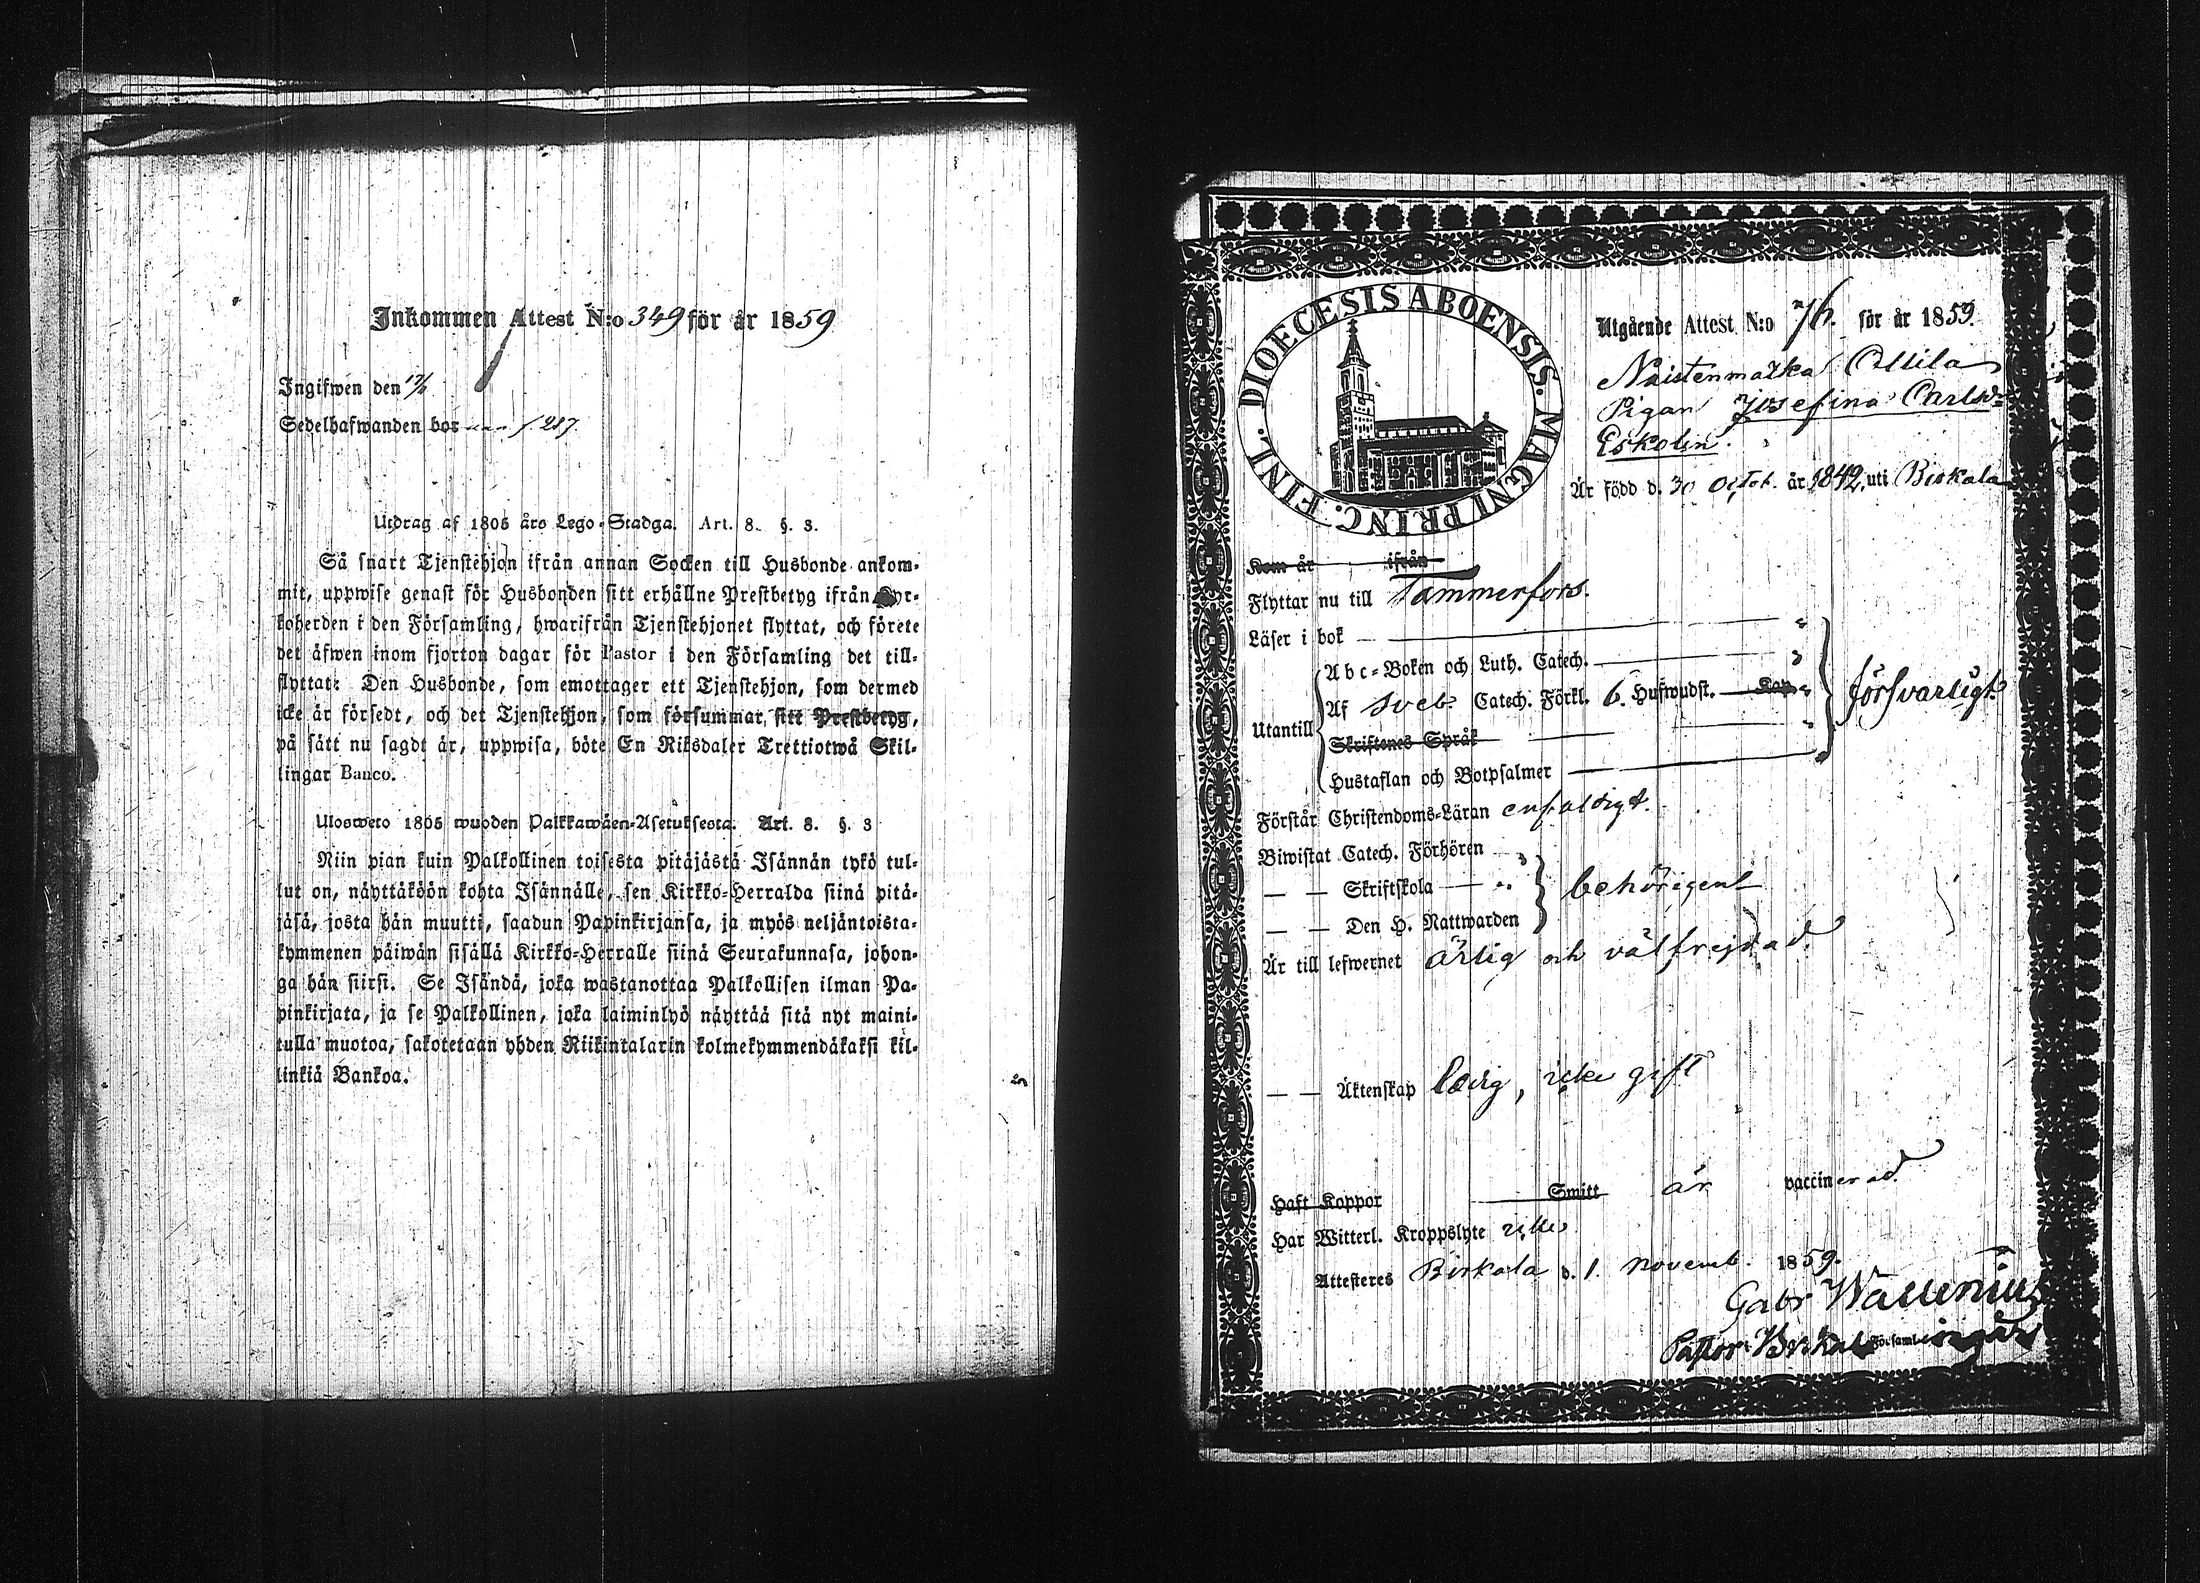 Inkommen Attest N:o 349 för år 1859
Ingifwen den
Sedelhafwanden bor 287
Utdrag af 1805 års Lego-Stadga. Art. 8. §. 3.
Så snart Tjenstehjon ifrån annan Socken till Husbonde ankom-
mit, uppwise genast för Husbonden sitt erhållne Prestbetyg ifrån Kyr-
koherden i den Församling, hwarifrån Tjenstehjonet flyttat, och förete
det äfwen inom fjorton dagar för Pastor i den Församling det till-
flyttat: Den Husbonde, som emottager ett Tjenstehjon, som dermed
icke är försedt, och det Tjenstehjon, som försummar sitt Prestbetyg,
på sätt nu sagdt är, uppwisa, böte En Riksdaler Trettiotwå Skil-
lingar Banco.
Ulosweto 1805 wuoden Palkkawäen-Asetuksesta. Art. 8. §. 3
Niin pian kuin Palkollinen toisesta pitäjästä Isännän tykö tul-
lut on, näyttäköön kohta Isännälle, sen Kirkko-Herralda siinä pitä-
jäsä, josta hän muutti, saadun Papinkirjansa, ja myös neljäntoista-
kymmenen päiwän sisällä Kirkko-Herralle siinä Seurakunnasa, johon-
ga hän siirsi. Se Isändä, joka wastanottaa Palkollisen ilman Pa-
pinkirjata, ja se Palkollinen, joka laiminlyö näyttää sitä nyt maini-
tulla muotoa, sakotetaan yhden Riikintalarin kolmekymmendäkaksi kil-
linkiä Bankoa.
DIOECESIS ABOENSIS. MAGNI PRINC. FINL.
Utgående Attest N:o 76. för år 1859.
Naistenmatka Ollila
Pigan Josefina Carlsd:
Eskolin.
Är född d. 30 Octob. år 1842 uti Birkala
Kom år ifrån
Flyttar nu till Tammerfors.
Läser i bok
Abc-Boken och Luth. Catech.
Af Sveb. Catech. Förkl. 6. Hufwudst. Kap. försvarligt
Utantill
Skriftenes Språk
Hustaflan och Botpsalmer
Förstår Christendoms-Läran enfaldigt.
Biwistat Catech. Förhören
— — Skriftskola behörigent
— — Den H. Nattwarden
Är till lefwernet ärlig och välfrejdad.
— — Äktenskap ledig, icke gift
Haft Koppor Smitt är vaccinerad.
Har Witterl. Kroppslyte icke
Attesteres Birkala d. 1. Novemb. 1859.
Gabr Wallenius
Pastor i Birkala Församlingar